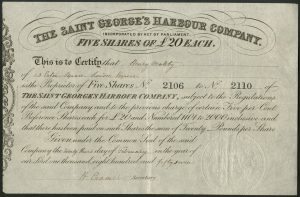 THE SAINT GEORGE'S HARBOUR COMPANY.
INCORPORATED BY ACT OF PARLIAMENT.
FIVE SHARES OF £20 EACH.
This is to Certify that Henry
of Square
is the Proprietor of FIVE SHARES No. 2106 to No. 2110 of
THE SAINT GEORGE'S HARBOUR COMPANY, subject to the Regulations
of the said Company and to the previous charge of certain Five per Cent
Preference Shares each for £20 and Numbered 1101 to 2000 inclusive and
that there has been paid on such Shares the sum of Twenty Pounds per Share
Given under the Common Seal of the said
Company the day of in the year of
our Lord one thousand eight hundred and fifty
Secretary